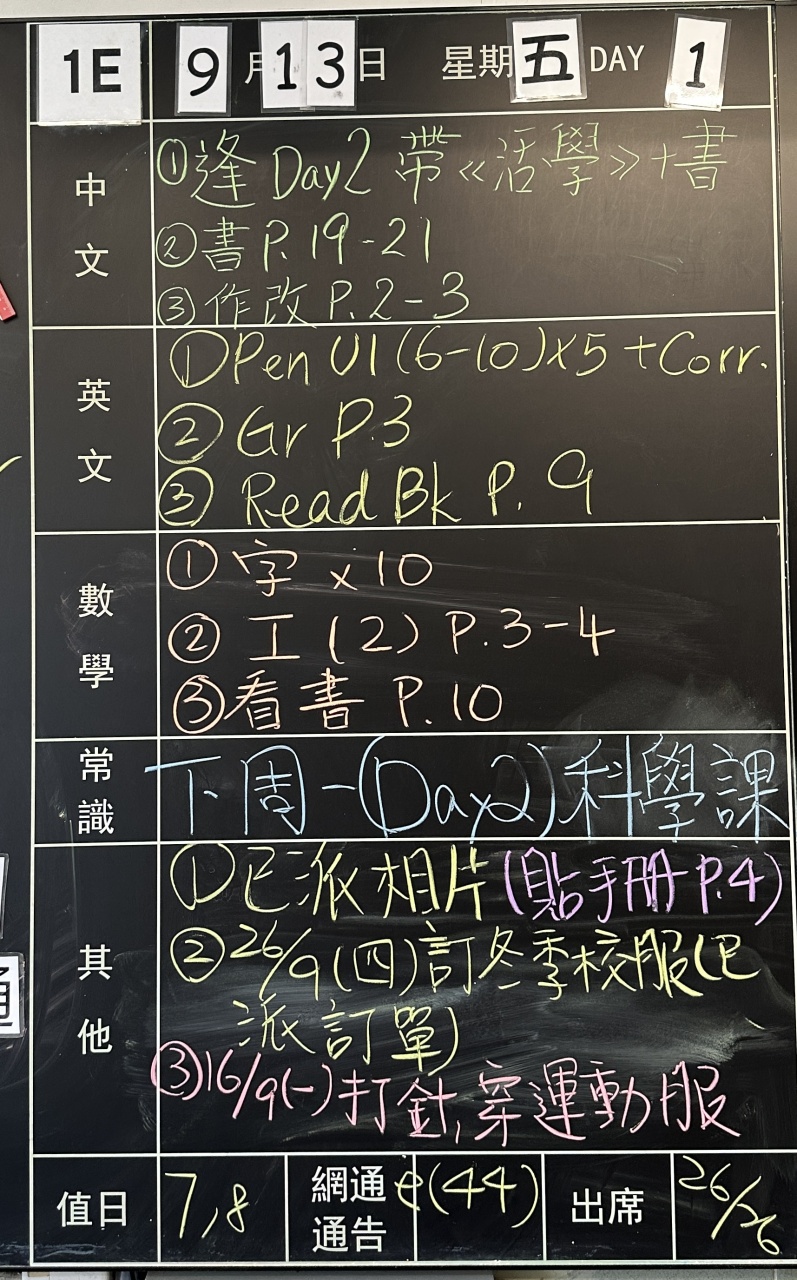 1E 9月13日 星期五 DAY 1
中文
①逢 Day2 帶《活學》+書
②書 P. 19-21
③作改 P. 2-3
英文
①Pen U1 (6-10)x5 + Corr.
② Gr P.3
③ Read Bk P. 9
數學
① 字 x10
② 工 (2) P.3-4
③看書 P.10
常識
下周一(Day2)科學課
其他
①已派相片(貼手冊 P.4)
②26/9(四)訂冬季校服(已
派訂單)
③16/9(一)打針,穿運動服
值日 7,8 網通 e(44) 出席 26/26
通告
通